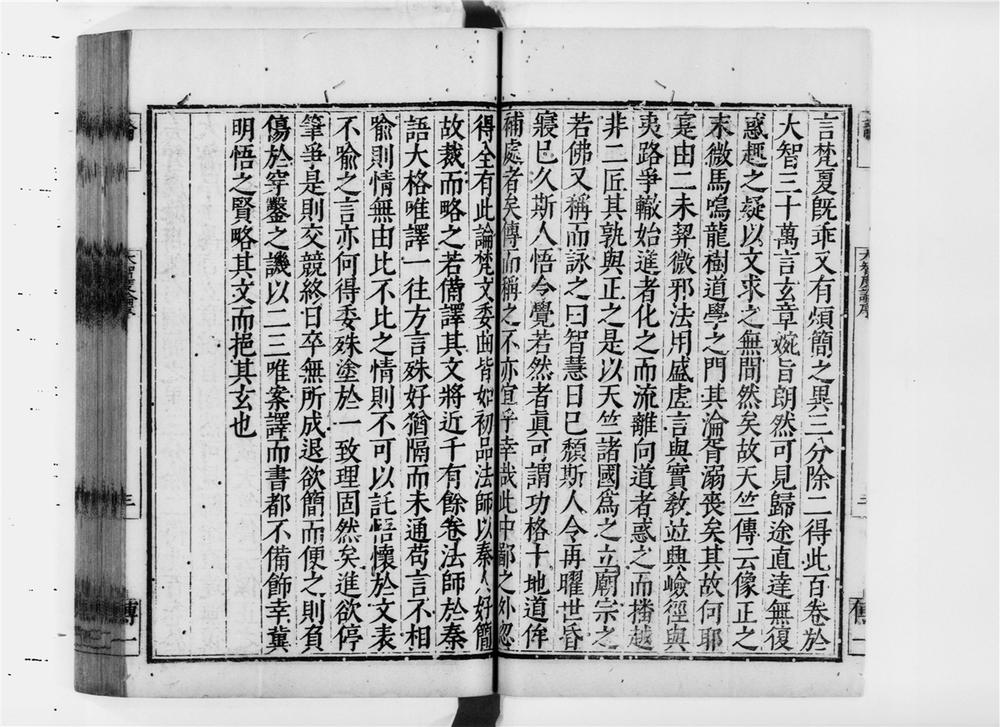 言梵夏既乖又有煩簡之異三分除二得此百卷於
大智三十萬言玄章婉旨朗然可見歸途直達無復
惑趣之疑以文求之無間然矣故天竺傳云像正之
末微馬鳴龍樹道學之門其淪胥溺喪矣其故何耶
寔由二未契微邪法用盛虛言與實教並興嶮徑與
夷路爭轍始進者化之而流離向道者惑之而播越
非二匠其孰與正之是以天竺諸國為之立廟宗之
若佛又稱而詠之曰智慧日已頹斯人令再曜世昏
寢已久斯人悟令覺若然者真可謂功格十地道侔
補處者矣傳而稱之不亦宜乎幸哉此中鄙之外忽
得全有此論梵文委曲皆如初品法師以秦人好簡
故裁而略之若備譯其文將近千有餘卷法師於秦
語大格唯譯一往方言殊好猶隔而未通苟言不相
喻則情無由比不比之情則不可以託悟懷於文表
不喻之言亦何得委殊塗於一致理固然矣進欲停
筆爭是則交競終日卒無所成退欲簡而便之則負
傷於穿鑿之譏以二三唯案譯而書都不備飾幸冀
明悟之賢略其文而挹其玄也
大智度論序
三
傳一